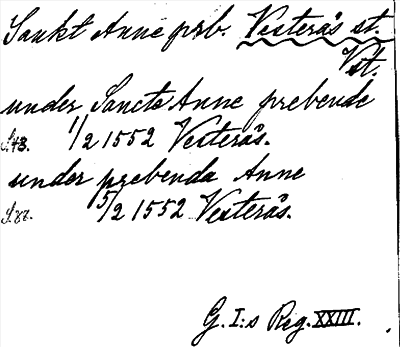 Sankt Anne prb. Vesterås st.
Vst.
under Sancte Anne prebende
S. 43. 1/2 1552 Vesterås.
under prebenda Anne
5/2 1552 Vesterås.
G. I:s Reg. XXIII.